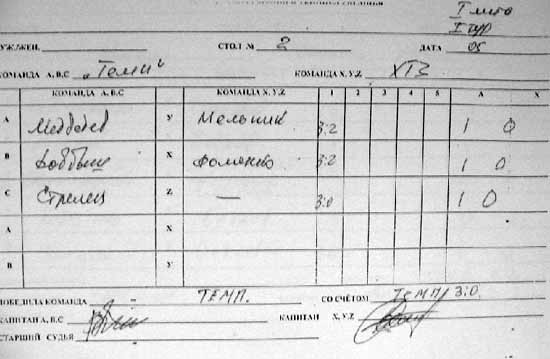 I место
I тур
УЖ/ЖЕН. СТОЛ № 2 ДАТА 05
КОМАНДА А,В,С „Темп" КОМАНДА X,Y,Z ХТЗ
КОМАНДА А,В,С КОМАНДА X,Y,Z 1 2 3 4 5 А X
А Медведев У Мельник 3:2 1 0
В X Фоменко 3:2 1 0
С Стрелец Z — 3:0 1 0
А X
В У
ПОБЕДИЛА КОМАНДА ТЕМП. СО СЧЁТОМ ТЕМП 3:0.
КАПИТАН А,В,С КАПИТАН X,Y,Z
СТАРШИЙ СУДЬЯ